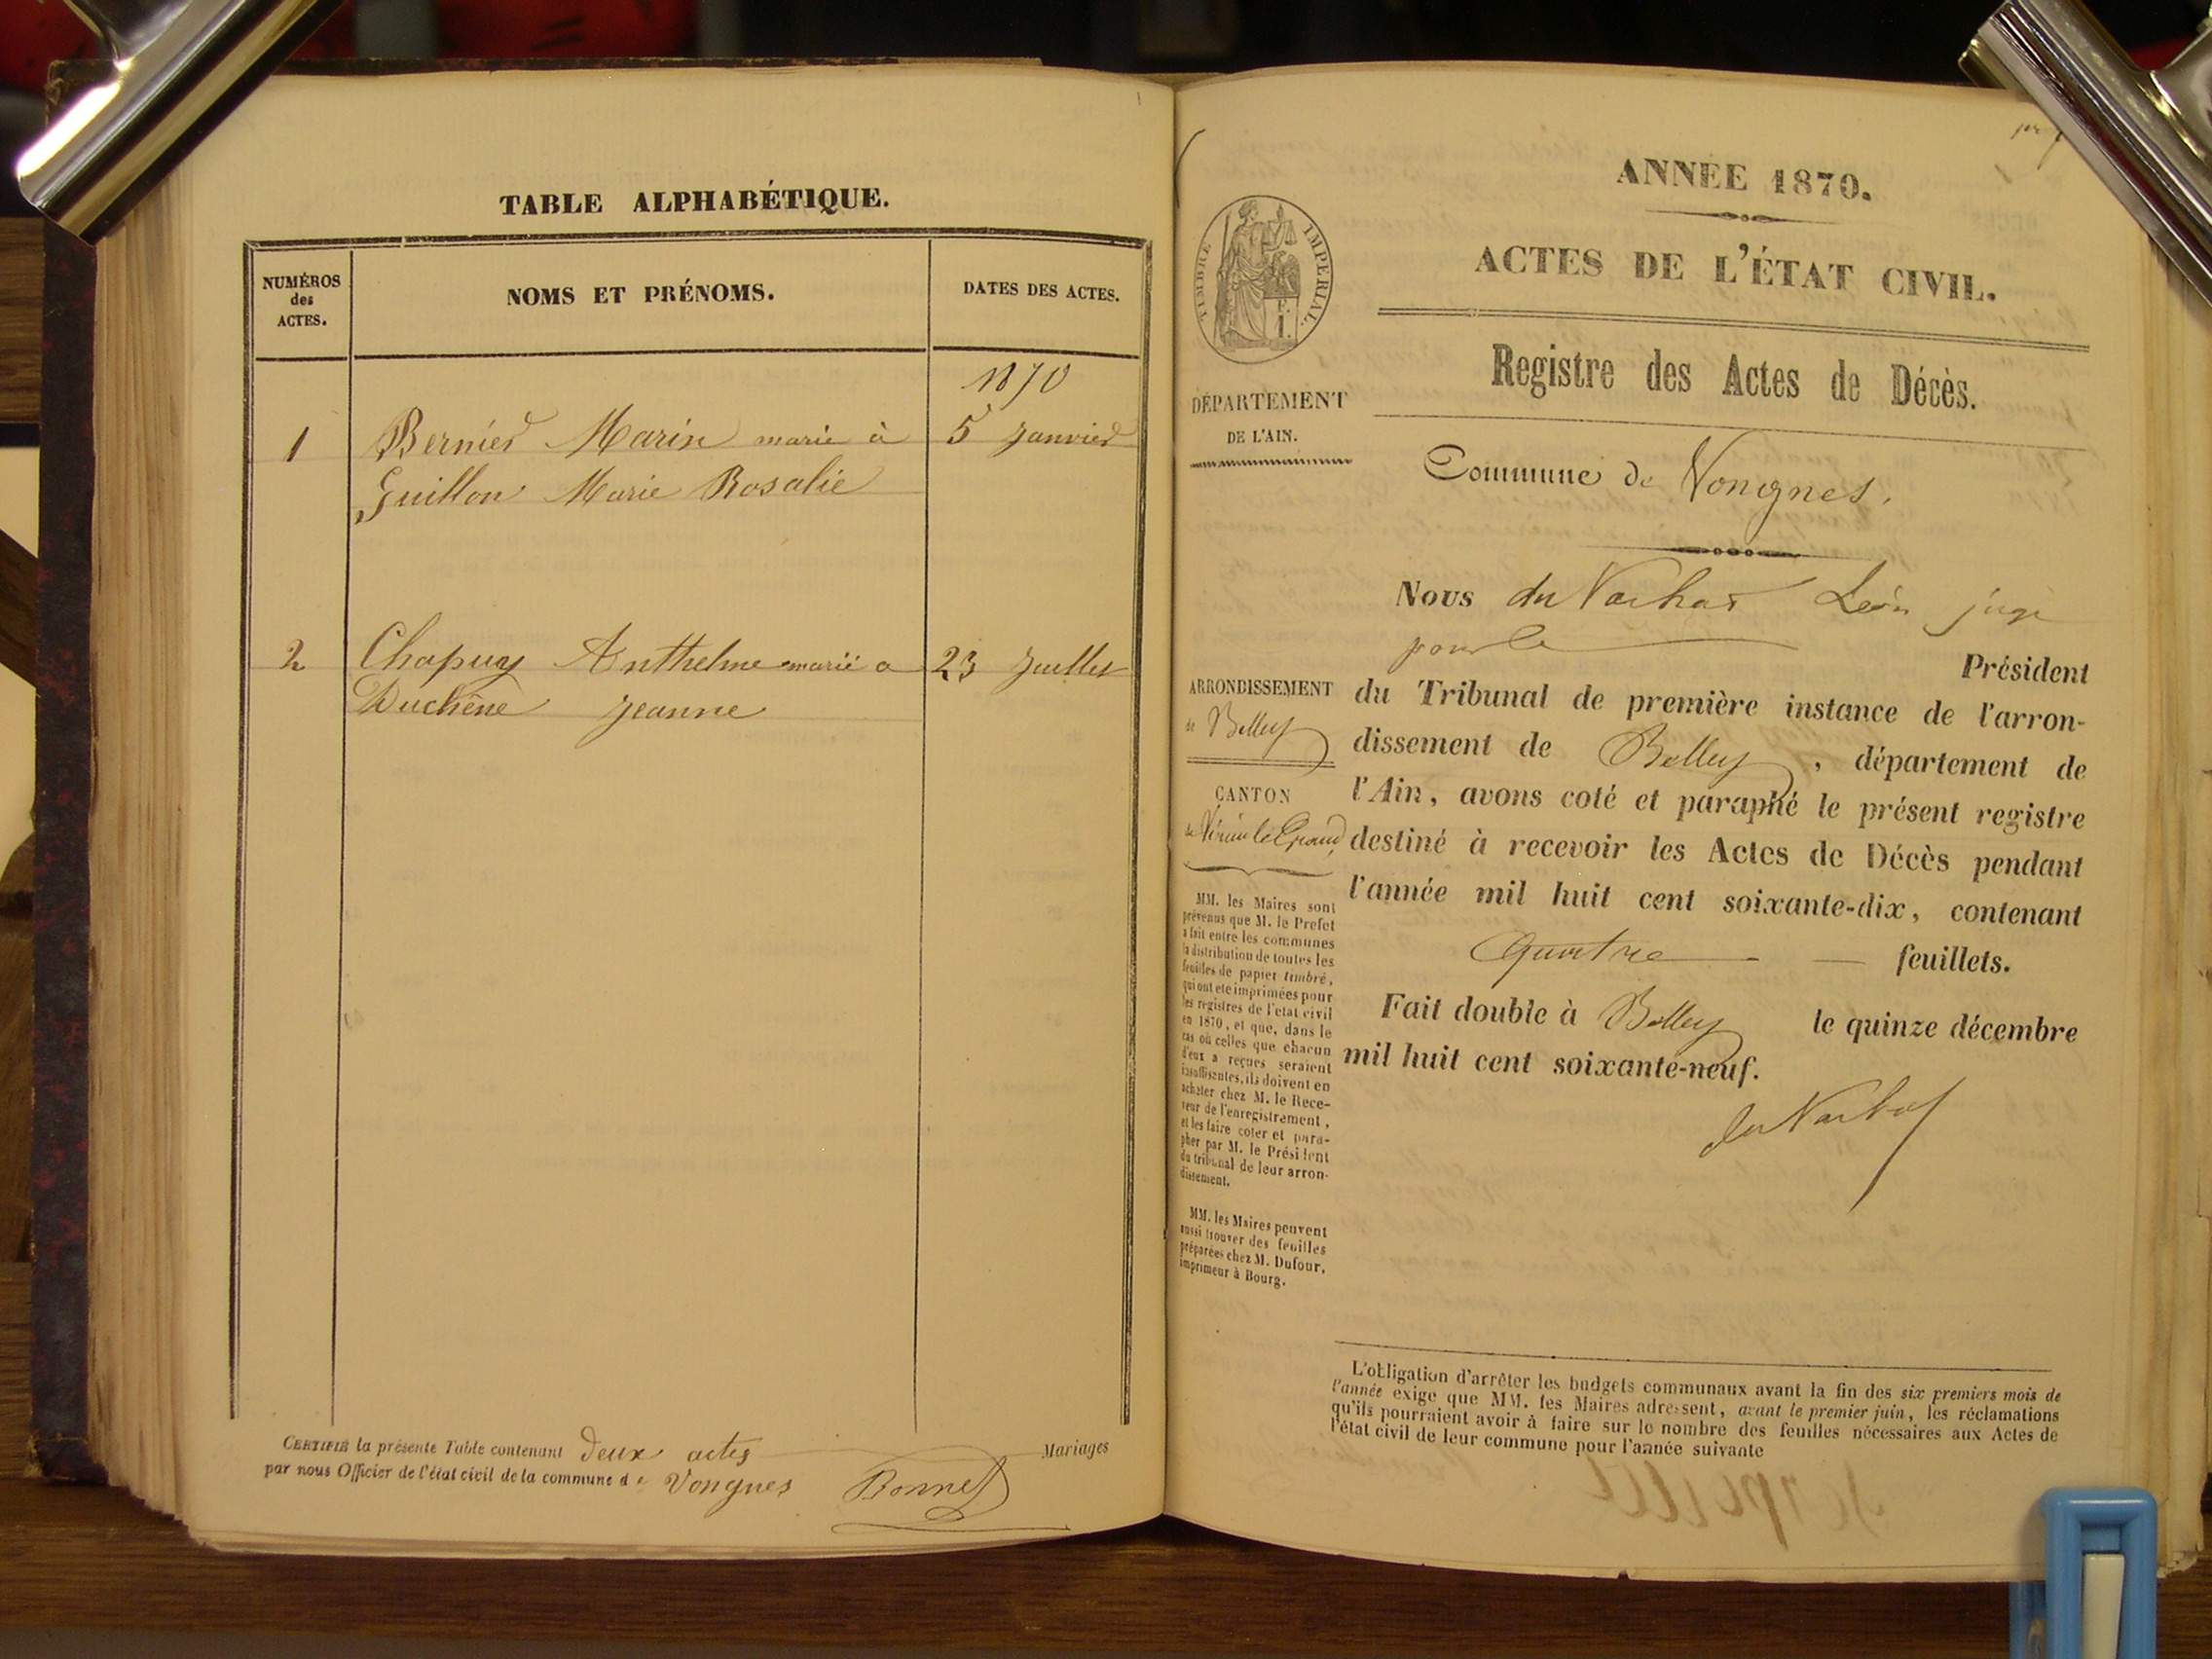 TABLE ALPHABÉTIQUE.
NUMÉROS
des
ACTES.
NOMS ET PRÉNOMS.
DATES DES ACTES.
1870
1 Bernier Marin marié à 5 Janvier
Guillon Marie Rosalie
2 Chapuy Anthelme marié a 23 Juillet
Duchêne Jeanne
CERTIFIÉ la présente Table contenant Deux actes Mariages
par nous Officier de l'état civil de la commune de Vongnes Bonnet
ANNÉE 1870.
ACTES DE L'ÉTAT CIVIL.
Registre des Actes de Décès.
TIMBRE IMPERIAL
DÉPARTEMENT
DE L'AIN.
Commune de Vongnes.
ARRONDISSEMENT
de Belley
CANTON
de Virieu le Grand
MM. les Maires sont
prévenus que M. le Préfet
a fait entre les communes
la distribution de toutes les
feuilles de papier timbré,
qui ont été imprimées pour
les registres de l'état civil
en 1870, et que, dans le
cas où celles que chacun
d'eux a reçues seraient
insuffisantes, ils doivent en
acheter chez M. le Rece-
veur de l'enregistrement,
et les faire coter et para-
pher par M. le Président
du tribunal de leur arron-
dissement.
MM. les Maires peuvent
aussi trouver des feuilles
préparées chez M. Dufour,
imprimeur à Bourg.
Nous du Léon juge
pour le
Président
du Tribunal de première instance de l'arron-
dissement de Belley, département de
l'Ain, avons coté et paraphé le présent registre
destiné à recevoir les Actes de Décès pendant
l'année mil huit cent soixante-dix, contenant
Quatre feuillets.
Fait double à Belley le quinze décembre
mil huit cent soixante-neuf.
L'obligation d'arrêter les budgets communaux avant la fin des six premiers mois de
l'année exige que MM. les Maires adressent, avant le premier juin, les réclamations
qu'ils pourraient avoir à faire sur le nombre des feuilles nécessaires aux Actes de
l'état civil de leur commune pour l'année suivante